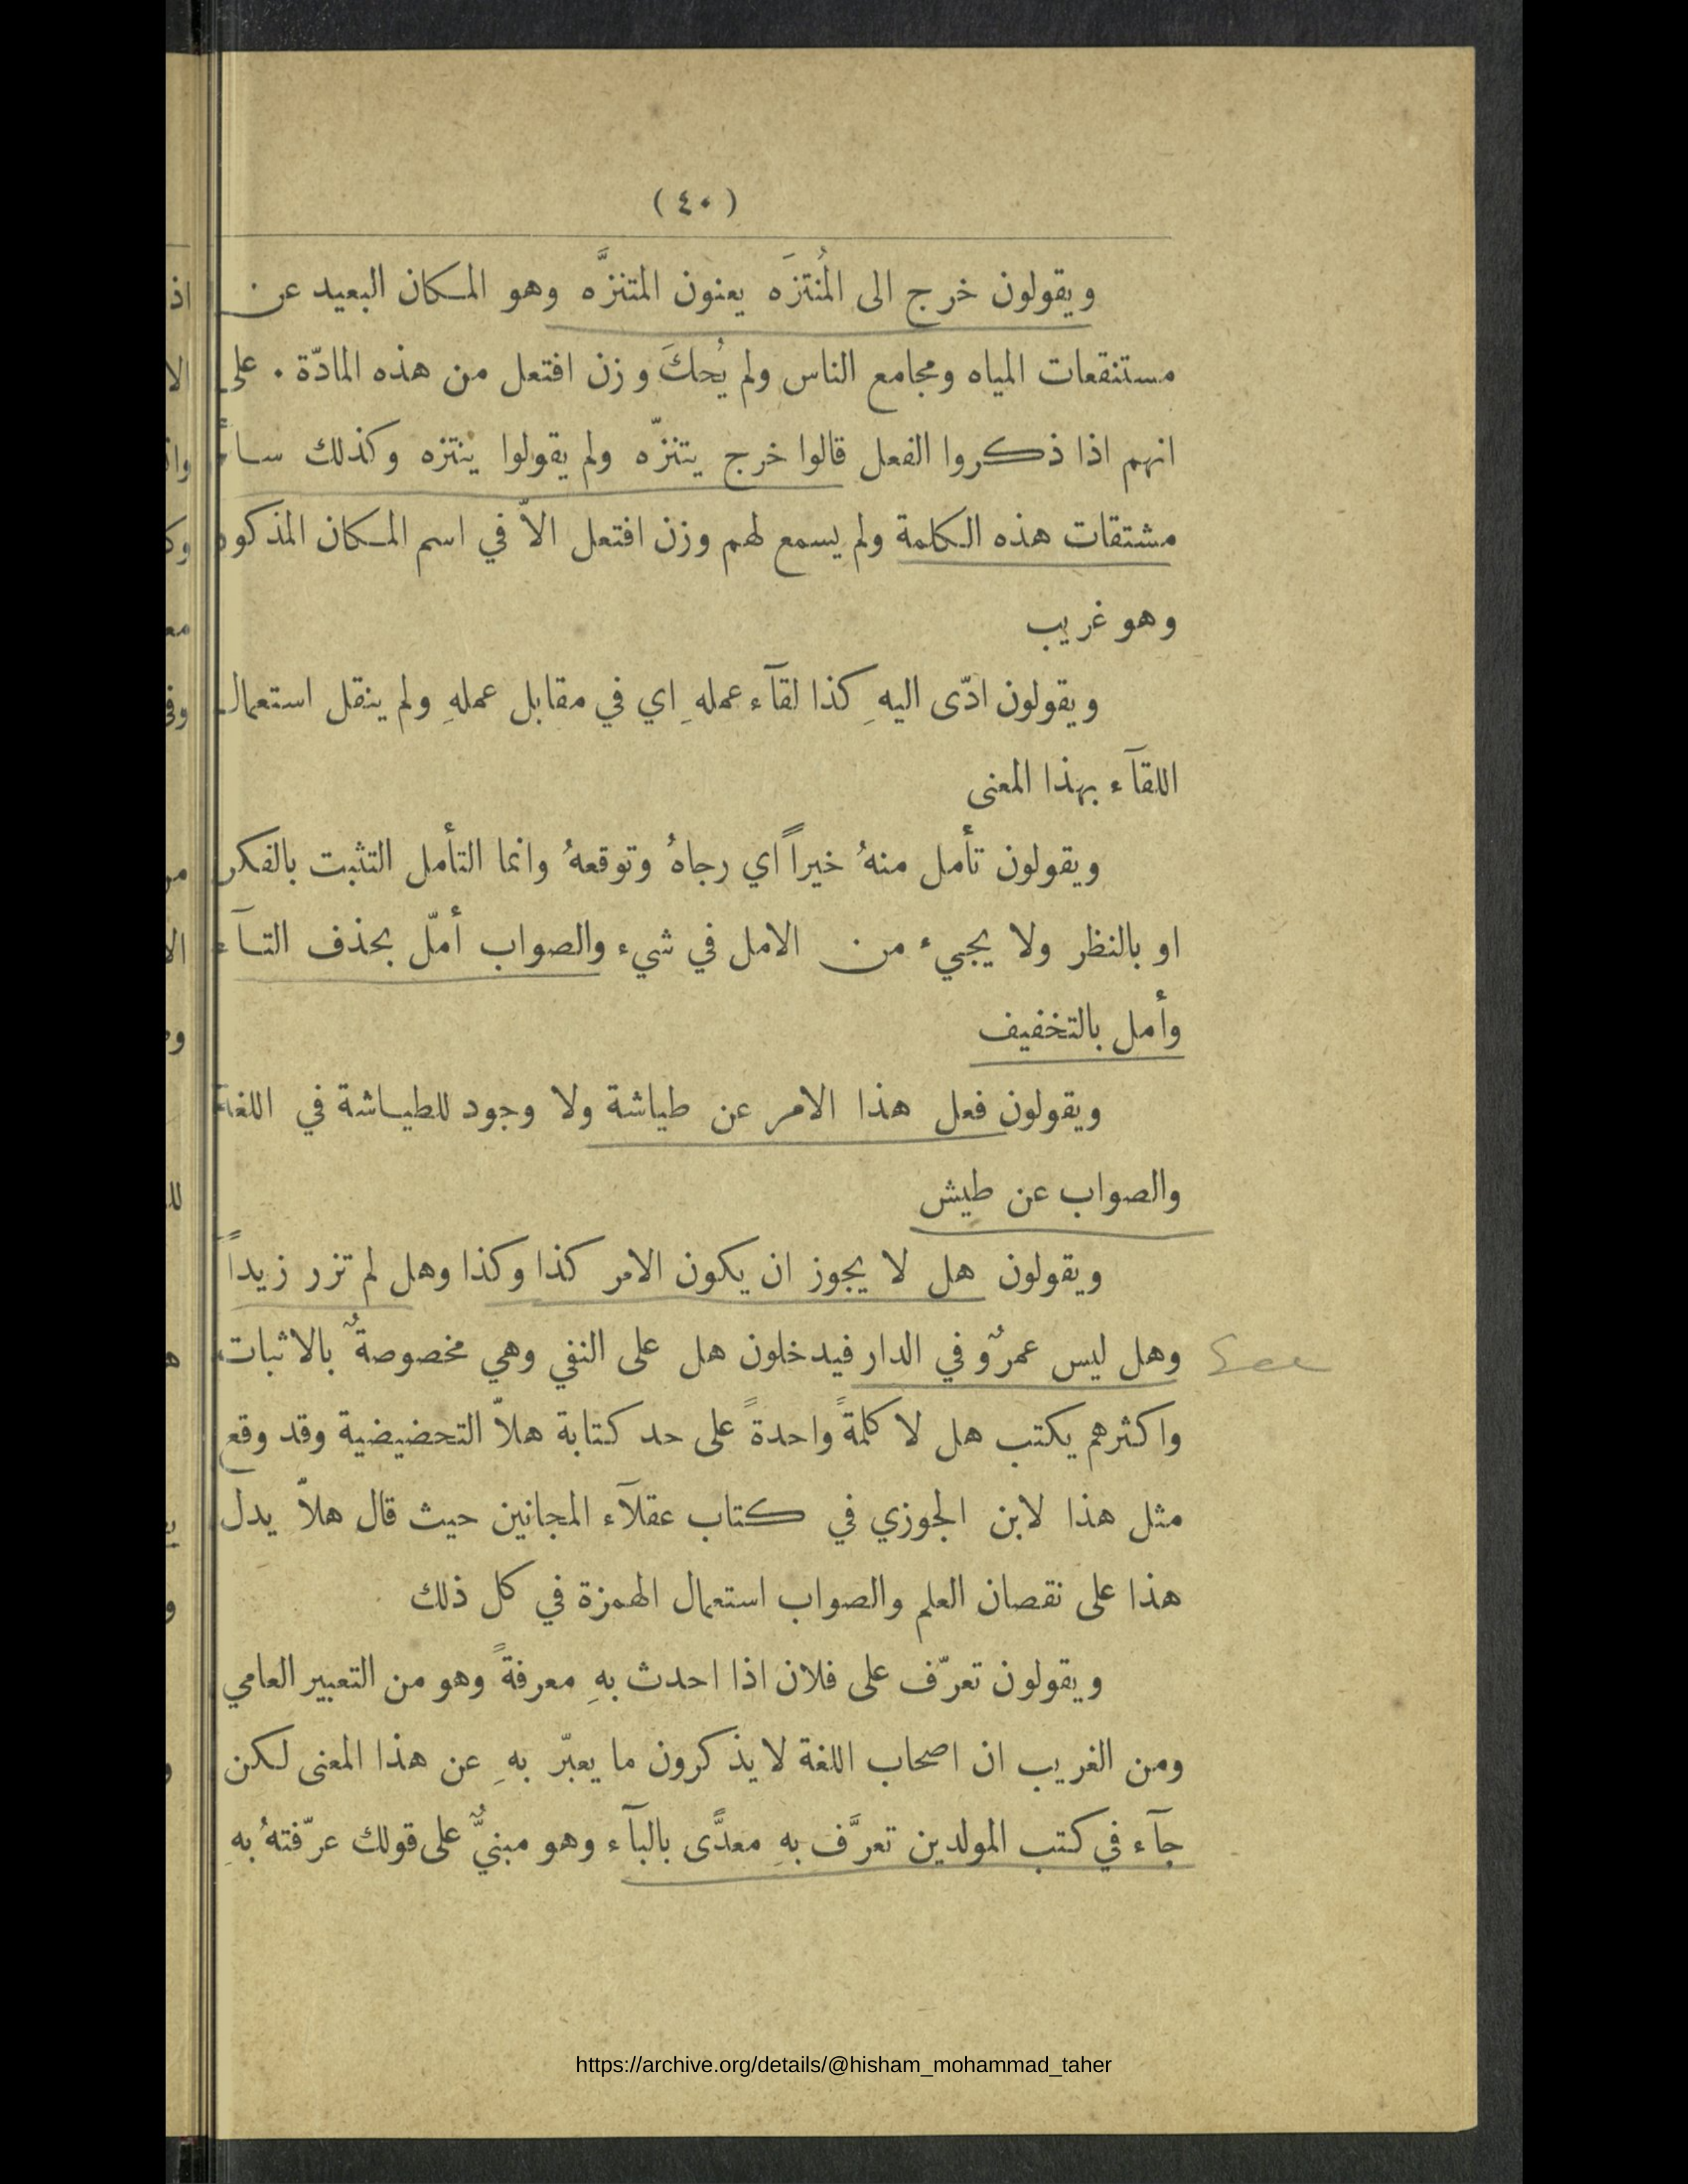 ( ٤٠ )
ويقولون خرج الى المُنتزَه يعنون المتنزَّه وهو المكان البعيد عن
مستنقعات المياه ومجامع الناس ولم يُحكَ وزن افتعل من هذه المادّة . على
انهم اذا ذكروا الفعل قالوا خرج يتنزّه ولم يقولوا ينتزه وكذلك سائر
مشتقات هذه الكلمة ولم يسمع لهم وزن افتعل الاّ في اسم المكان المذكور
وهو غريب
ويقولون ادّى اليهِ كذا لقآء عملهِ اي في مقابل عملهِ ولم ينقل استعمال
اللقآء بهذا المعنى
ويقولون تأمل منهُ خيراً اي رجاهُ وتوقعهُ وانما التأمل التثبت بالفكر
او بالنظر ولا يجيء من الامل في شيء والصواب أمّل بحذف التآء
وأمل بالتخفيف
ويقولون فعل هذا الامر عن طياشة ولا وجود للطياشة في اللغة
والصواب عن طيش
ويقولون هل لا يجوز ان يكون الامر كذا وكذا وهل لم تزر زيداً
وهل ليس عمرٌو في الدار فيدخلون هل على النفي وهي مخصوصةٌ بالاثبات
واكثرهم يكتب هل لا كلمةً واحدةً على حد كتابة هلاّ التحضيضية وقد وقع
مثل هذا لابن الجوزي في كتاب عقلآء المجانين حيث قال هلاّ يدل
هذا على نقصان العلم والصواب استعمال الهمزة في كل ذلك
ويقولون تعرّف على فلان اذا احدث بهِ معرفةً وهو من التعبير العامي
ومن الغريب ان اصحاب اللغة لا يذكرون ما يعبّر بهِ عن هذا المعنى لكن
جآء في كتب المولدين تعرَّف بهِ معدًّى بالبآء وهو مبنيٌّ على قولك عرّفتهُ بهِ
https://archive.org/details/@hisham_mohammad_taher